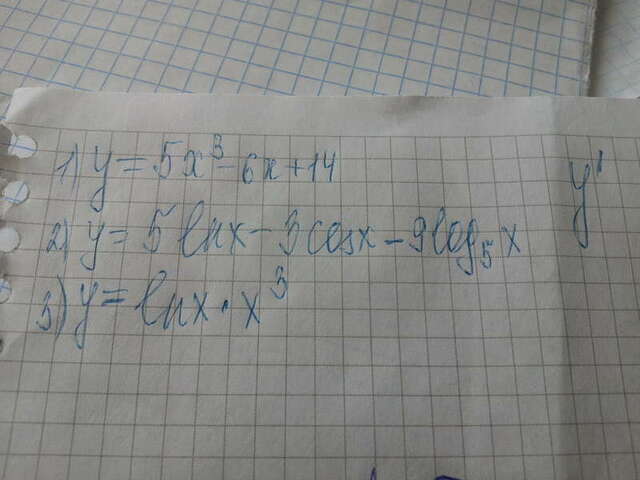 1) y = 5x³ - 6x + 14
y'
2) y = 5 lnx - 3cosx - 9log₅x
3) y = lnx · x³